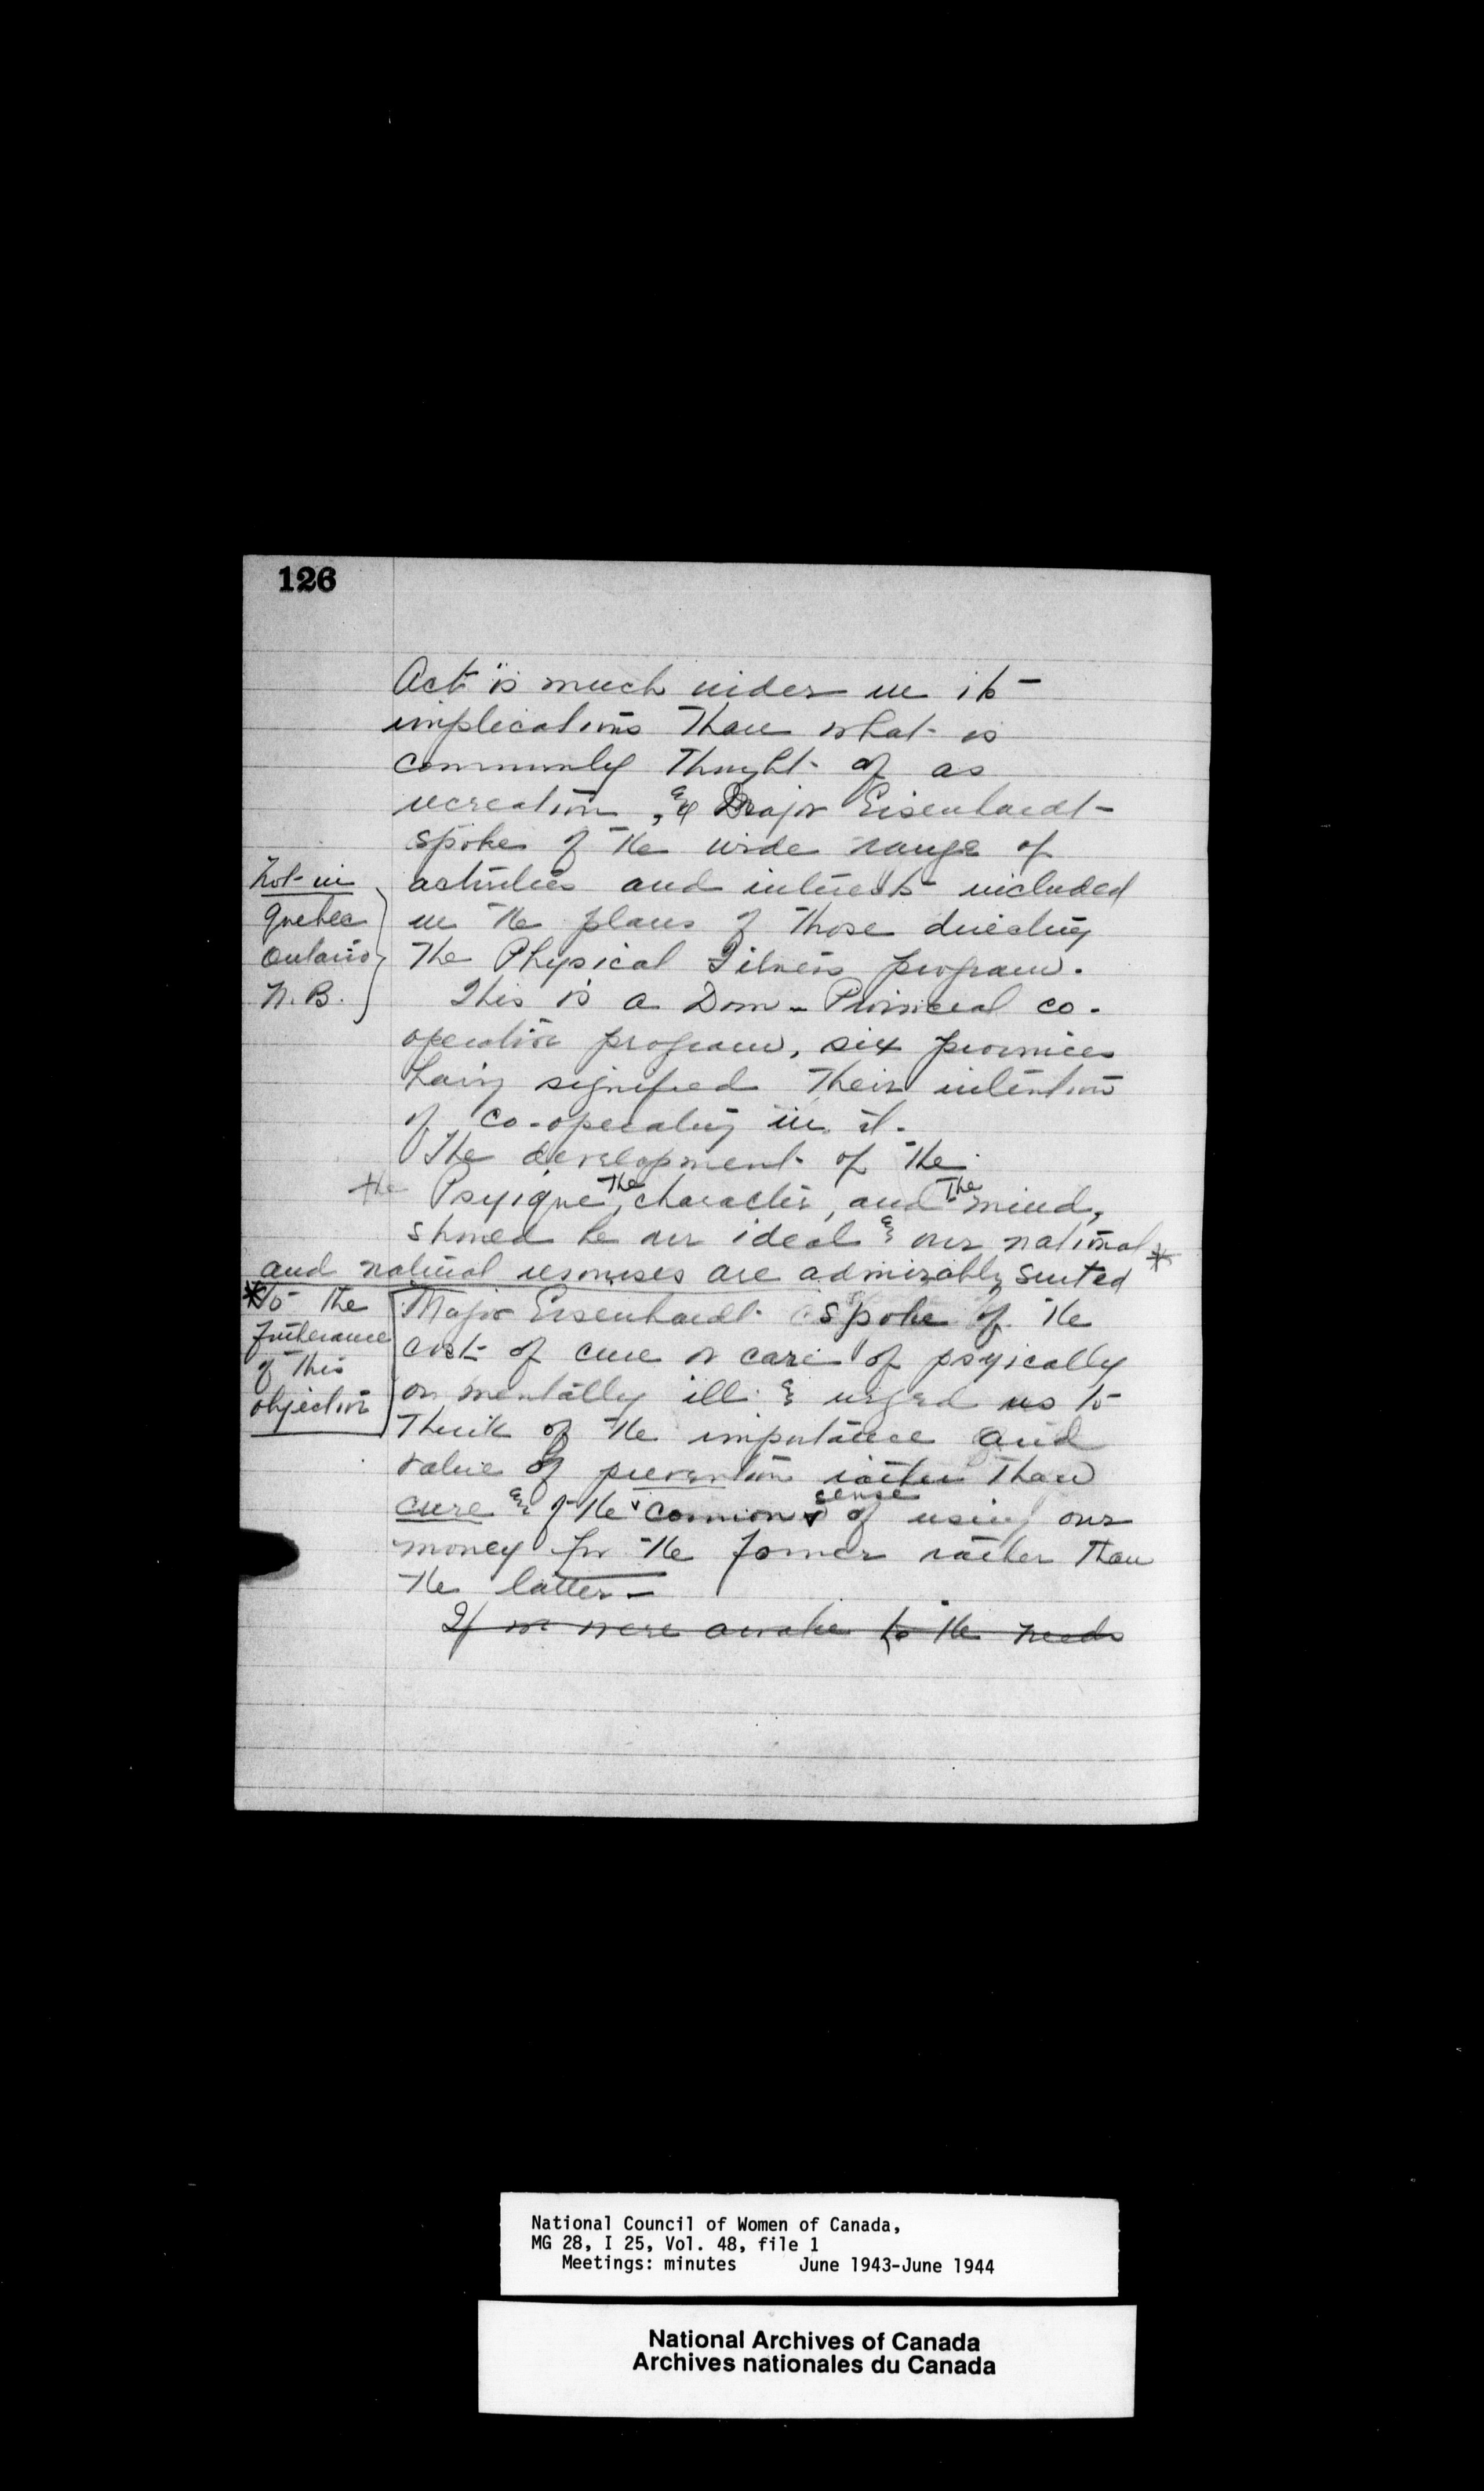 126
Act" is much wider in its
implications than what is
commonly thought of as
recreation, & Major Eisenhardt
spoke of the wide range of
activities and interests included
in the plans of those directing
the Physical Fitness program.
Not in
Quebec
Ontario
N. B.
This is a Dom - Provincial co-
operative program, six provinces
having signified their intention
of co-operating in it.
The development of the
the Psyique, the character, and the mind,
should be our ideal & our national *
and natural resourses are admirably suited
* to the
furtherance
of this
objective
Major Eisenhardt spoke of the
cost of cure or care of psyically
or mentally ill & urged us to
think of the importance and
value of prevention rather than
cure & of the common sense of using our
money for the former rather than
the latter -
If we were awake to the needs
National Council of Women of Canada,
MG 28, I 25, Vol. 48, file 1
Meetings: minutes June 1943-June 1944
National Archives of Canada
Archives nationales du Canada